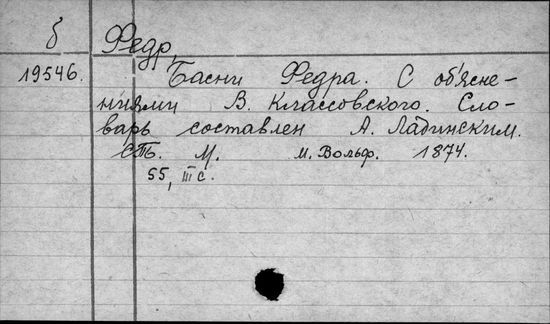 б Федр,
19546. Басни Федра. С объясне-
ниями В. Классовского. Сло-
варь составлен А. Ладинским.
СПб. М. М. Вольф. 1874.
55, III с.